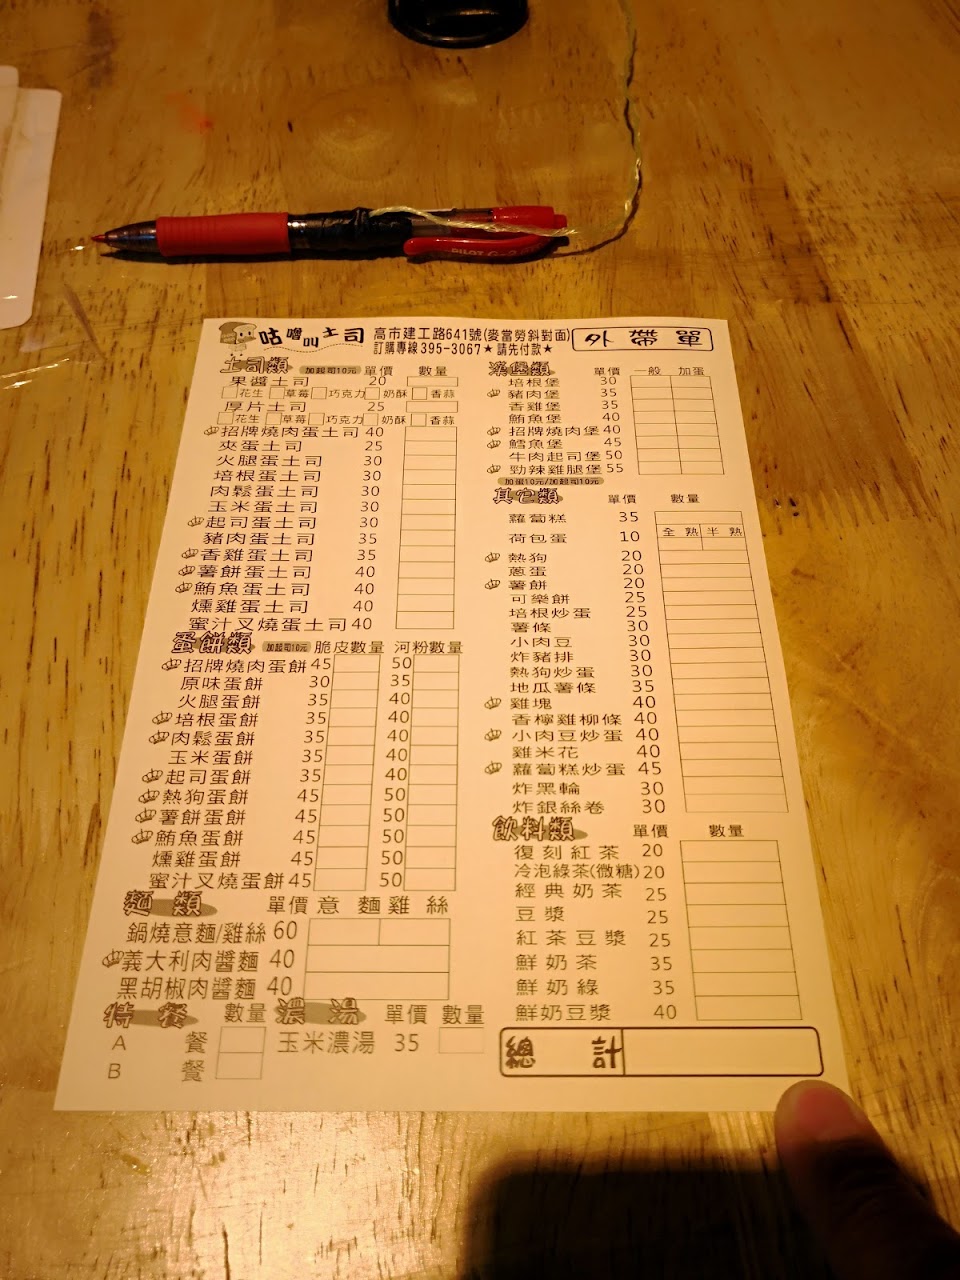 PILOT G-2
咕嚕叫土司 高市建工路641號(麥當勞斜對面) 外帶單
訂購專線395-3067★請先付款★
土司類 加起司10元 單價 數量
果醬土司 20
花生 草莓 巧克力 奶酥 香蒜
厚片土司 25
花生 草莓 巧克力 奶酥 香蒜
招牌燒肉蛋土司 40
夾蛋土司 25
火腿蛋土司 30
培根蛋土司 30
肉鬆蛋土司 30
玉米蛋土司 30
起司蛋土司 30
豬肉蛋土司 35
香雞蛋土司 35
薯餅蛋土司 40
鮪魚蛋土司 40
燻雞蛋土司 40
蜜汁叉燒蛋土司 40
蛋餅類 加起司10元 脆皮數量 河粉數量
招牌燒肉蛋餅 45 50
原味蛋餅 30 35
火腿蛋餅 35 40
培根蛋餅 35 40
肉鬆蛋餅 35 40
玉米蛋餅 35 40
起司蛋餅 35 40
熱狗蛋餅 45 50
薯餅蛋餅 45 50
鮪魚蛋餅 45 50
燻雞蛋餅 45 50
蜜汁叉燒蛋餅 45 50
麵類 單價 意麵 雞絲
鍋燒意麵/雞絲 60
義大利肉醬麵 40
黑胡椒肉醬麵 40
特餐 數量
A餐
B餐
濃湯 單價 數量
玉米濃湯 35
漢堡類 單價 一般 加蛋
培根堡 30
豬肉堡 35
香雞堡 35
鮪魚堡 40
招牌燒肉堡 40
鱈魚堡 45
牛肉起司堡 50
勁辣雞腿堡 55
加蛋10元/加起司10元
其它類 單價 數量
蘿蔔糕 35
荷包蛋 10 全熟 半熟
熱狗 20
蔥蛋 20
薯餅 20
可樂餅 25
培根炒蛋 25
薯條 30
小肉豆 30
炸豬排 30
熱狗炒蛋 30
地瓜薯條 35
雞塊 40
香檸雞柳條 40
小肉豆炒蛋 40
雞米花 40
蘿蔔糕炒蛋 45
炸黑輪 30
炸銀絲卷 30
飲料類 單價 數量
復刻紅茶 20
冷泡綠茶(微糖) 20
經典奶茶 25
豆漿 25
紅茶豆漿 25
鮮奶茶 35
鮮奶綠 35
鮮奶豆漿 40
總計